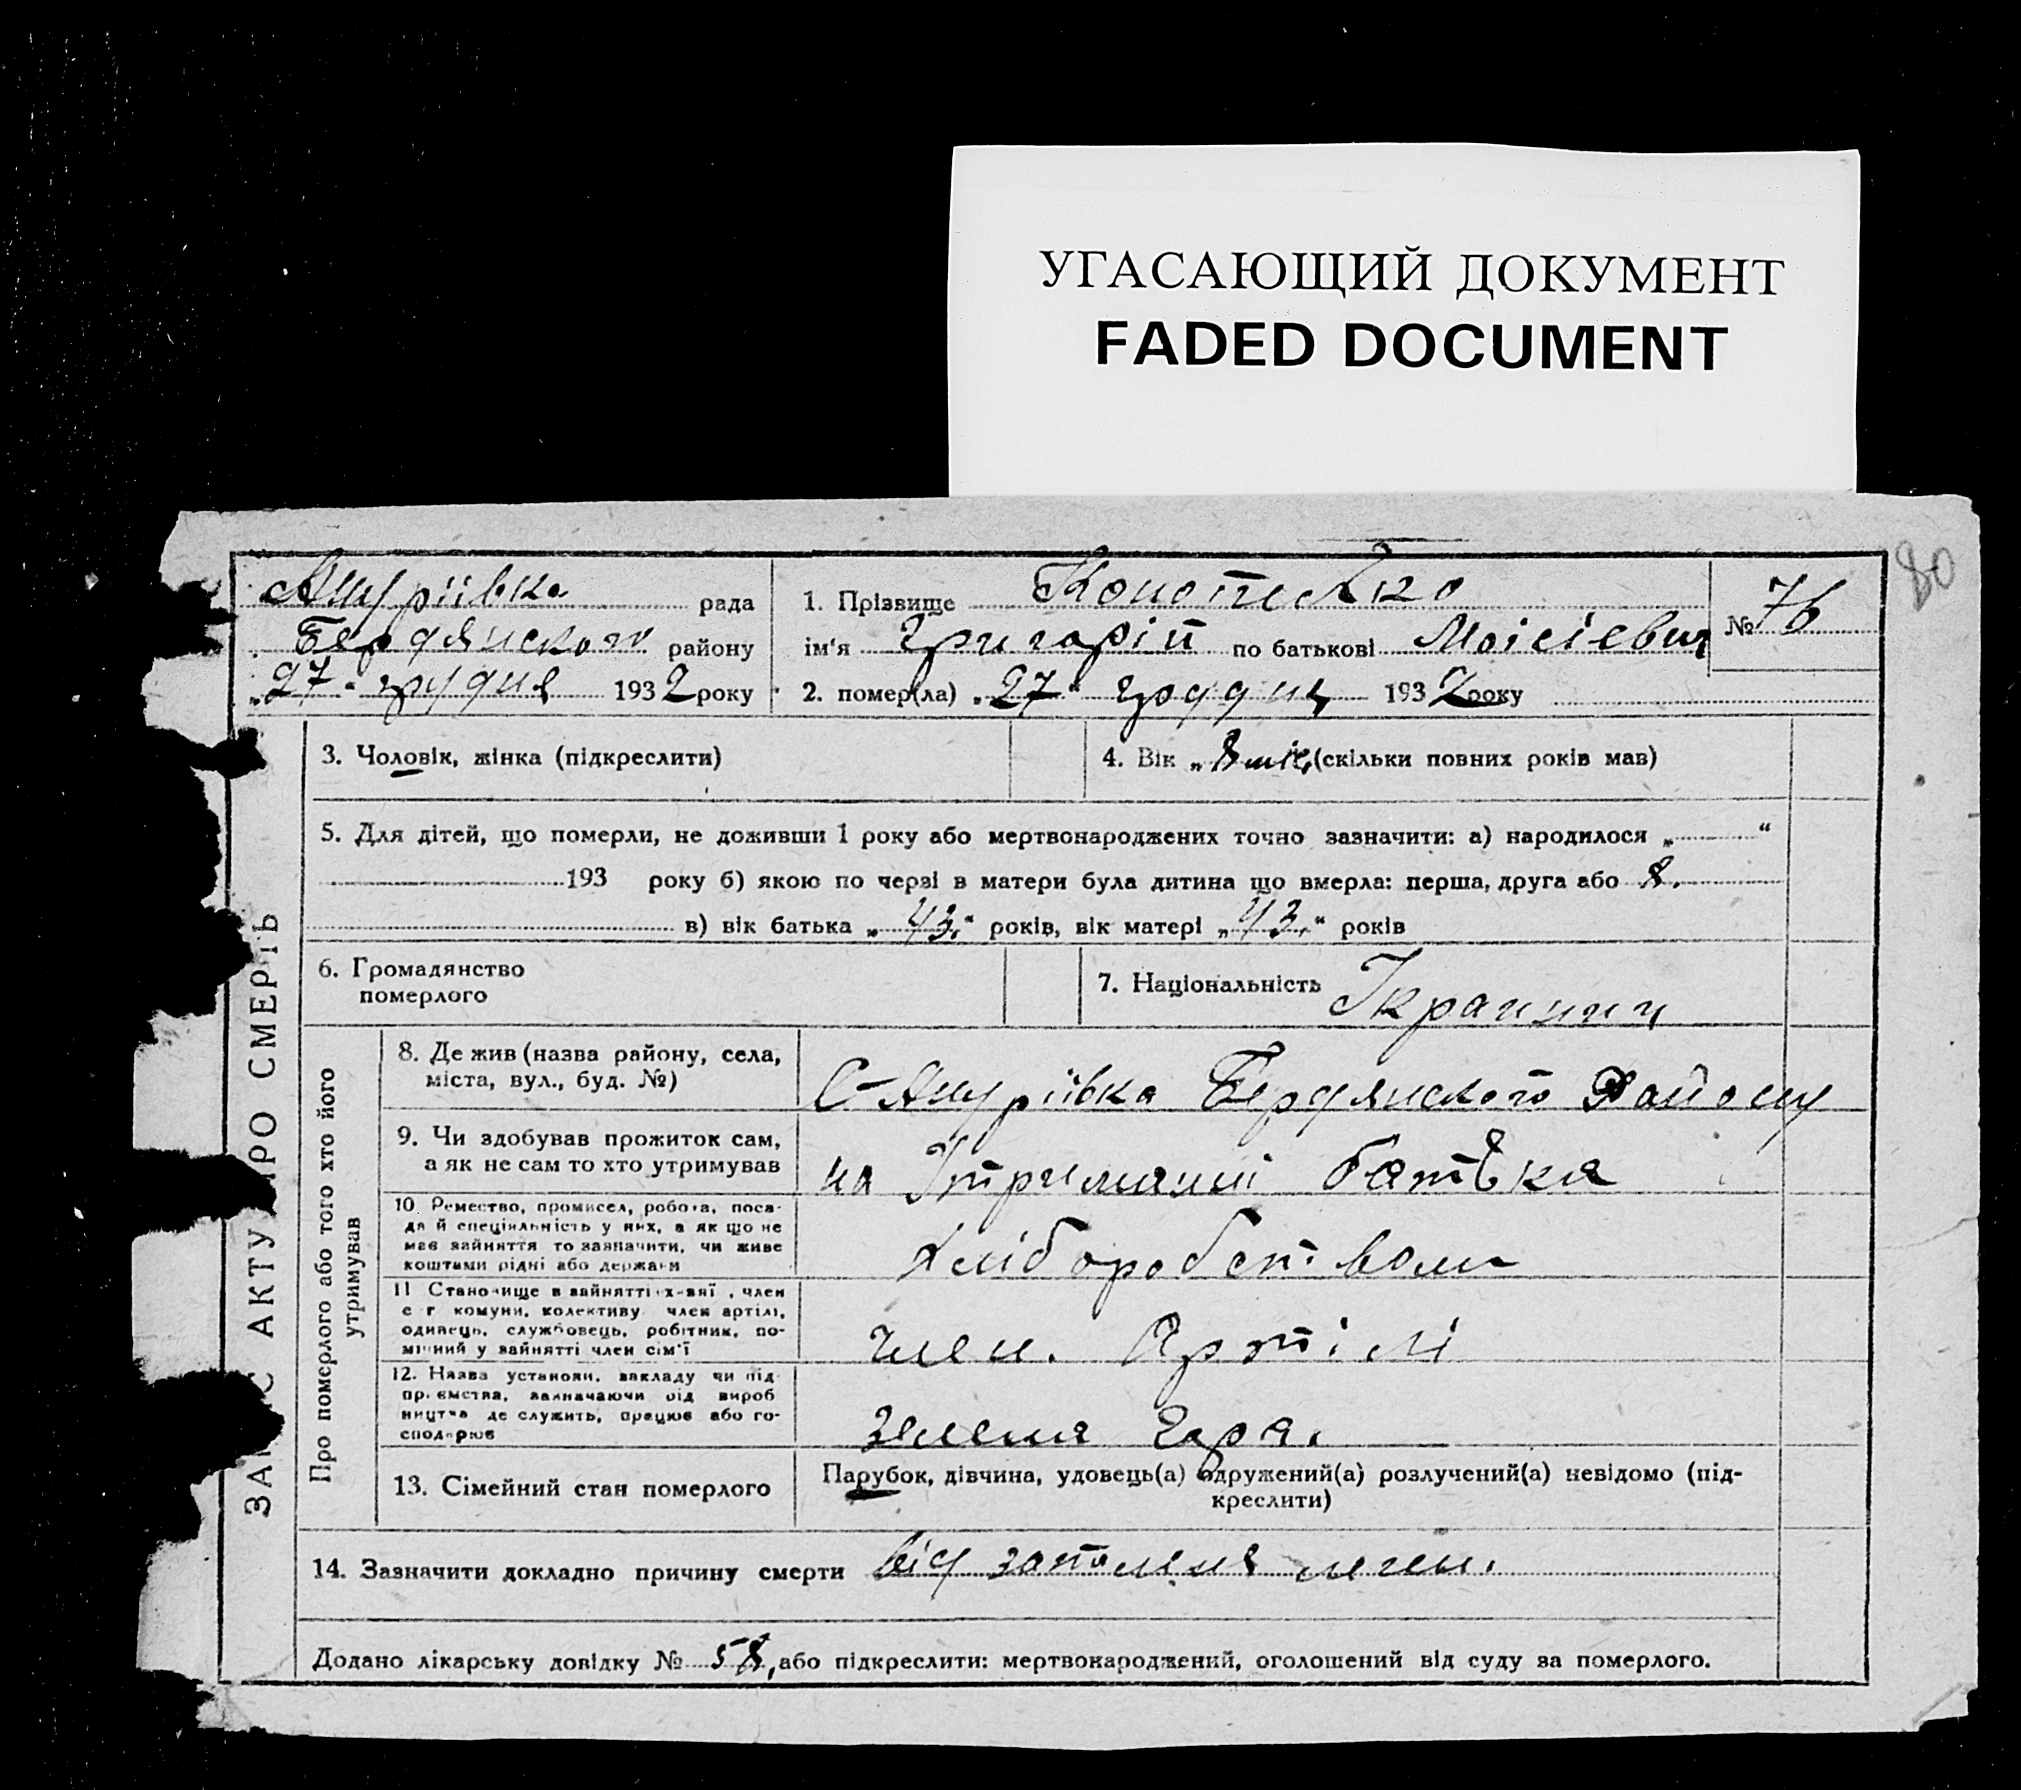 УГАСАЮЩИЙ ДОКУМЕНТ
FADED DOCUMENT
80
рада
Бердянского району
„27“ грудня 1932 року
1. Прізвище
ім'я Григорій по батькові Моісієвич
№ 76
2. помер(ла) „27“ грудня 1932 року
ЗАПИС АКТУ ПРО СМЕРТЬ
3. Чоловік, жінка (підкреслити)
4. Вік „8 міс. (скільки повних років мав)
5. Для дітей, що померли, не доживши 1 року або мертвонароджених точно зазначити: а) народилося „ “
193 року б) якою по черзі в матери була дитина що вмерла: перша, друга або 8.
в) вік батька „43.“ років, вік матері „43.“ років
6. Громадянство
померлого
7. Національність Украинич
Про померлого або того хто його
утримував
8. Де жив (назва району, села,
міста, вул., буд. №)
Бердянского Району
9. Чи здобував прожиток сам,
а як не сам то хто утримував
на Утриманні батька
10. Ремество, промисел, робота, поса-
да й спеціяльність у них, а як що не
має зайняття то зазначити, чи живе
коштами рідні або держави
Хліборобством
11 Становище в зайнятті, член
с-г комуни, колективу член артілі,
одинець, службовець, робітник, по-
мічний у зайнятті член сім'ї
член. Артілі
12. Назва установи, закладу чи під-
приємства, зазначаючи від вироб
ництва де служить, працює або го-
сподарює
Зелена Гора.
13. Сімейний стан померлого
Парубок, дівчина, удовець(а) одружений(а) розлучений(а) невідомо (під-
креслити)
14. Зазначити докладно причину смерти від запаленя леген.
Додано лікарську довідку № 58, або підкреслити: мертвонароджений, оголошений від суду за померлого.